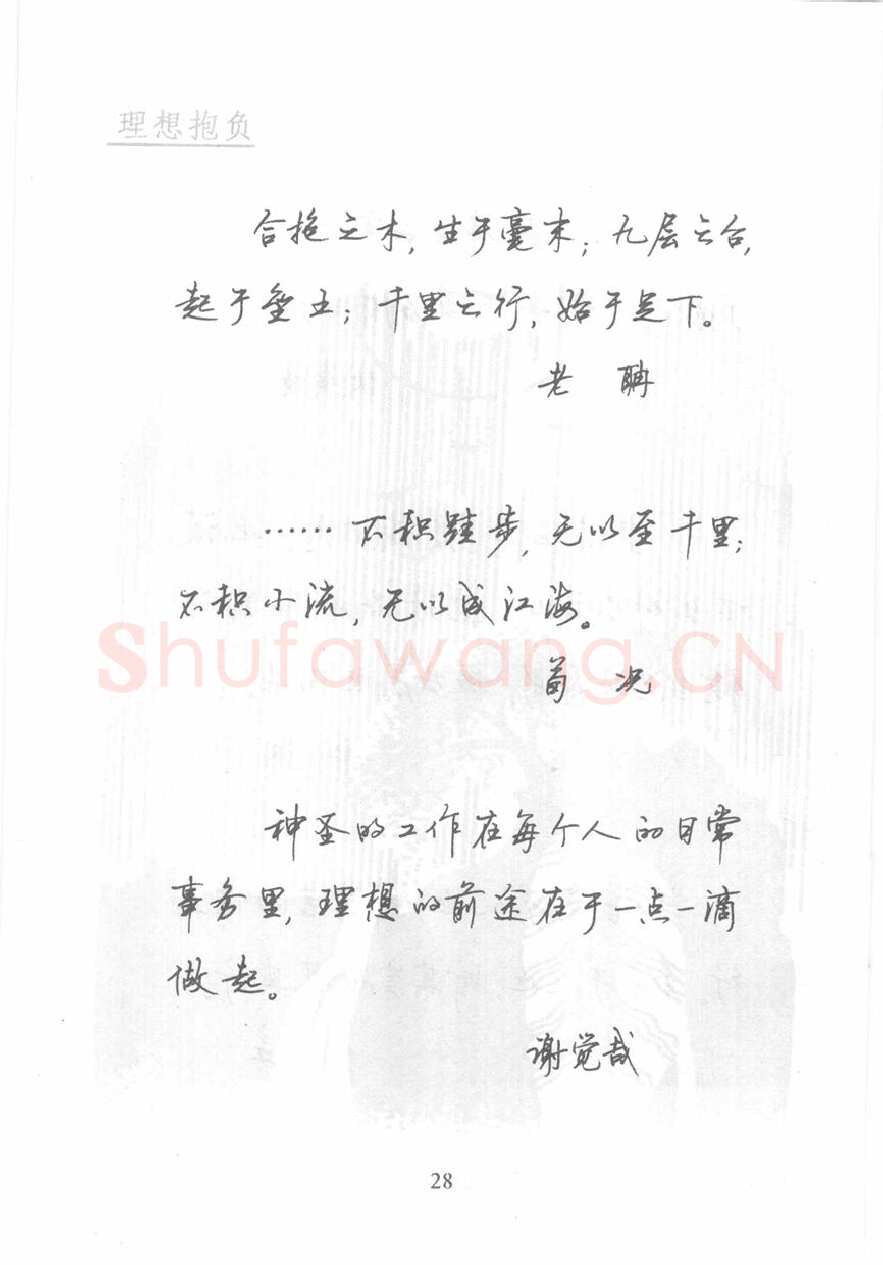 理想抱负
合抱之木,生于毫末;九层之台,
起于垒土;千里之行,始于足下。
老聃
……不积跬步,无以至千里;
不积小流,无以成江海。
荀况
神圣的工作在每个人的日常
事务里,理想的前途在于一点一滴
做起。
谢觉哉
28
Shufawang.CN